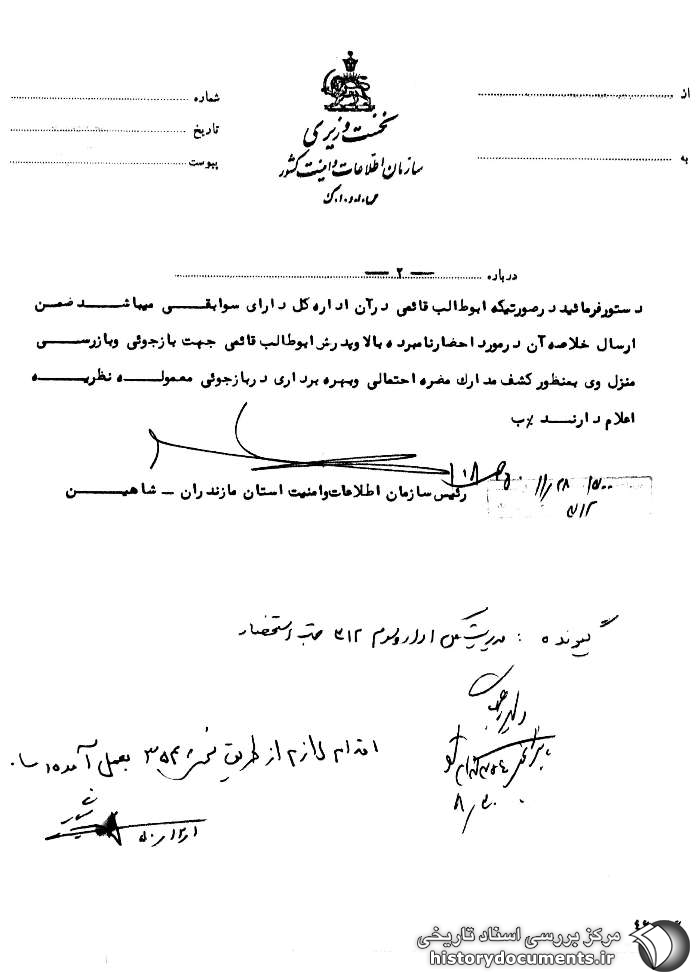 از
شماره
تاریخ
به
پیوست
نخست وزیری
سازمان اطلاعات و امنیت کشور
س.ا.و.ا.ک
درباره — ۲ —
دستورفرمائید درصورتیکه ابوطالب قائمی درآن اداره کل دارای سوابقی میباشد ضمن
ارسال خلاصه آن درمورد احضارنامبرده بالا وپدرش ابوطالب قائمی جهت بازجوئی وبازرسی
منزل وی بمنظور کشف مدارک مضره احتمالی وبهره برداری دربازجوئی معموله نظریه
اعلام دارند
رئیس سازمان اطلاعات وامنیت استان مازندران – شاهین
گیرنده : مدیریت کل اداره سوم ۳۱۲ جهت استحضار
اقدام لازم از طریق بعمل آمده
مرکز بررسی اسناد تاریخی
historydocuments.ir